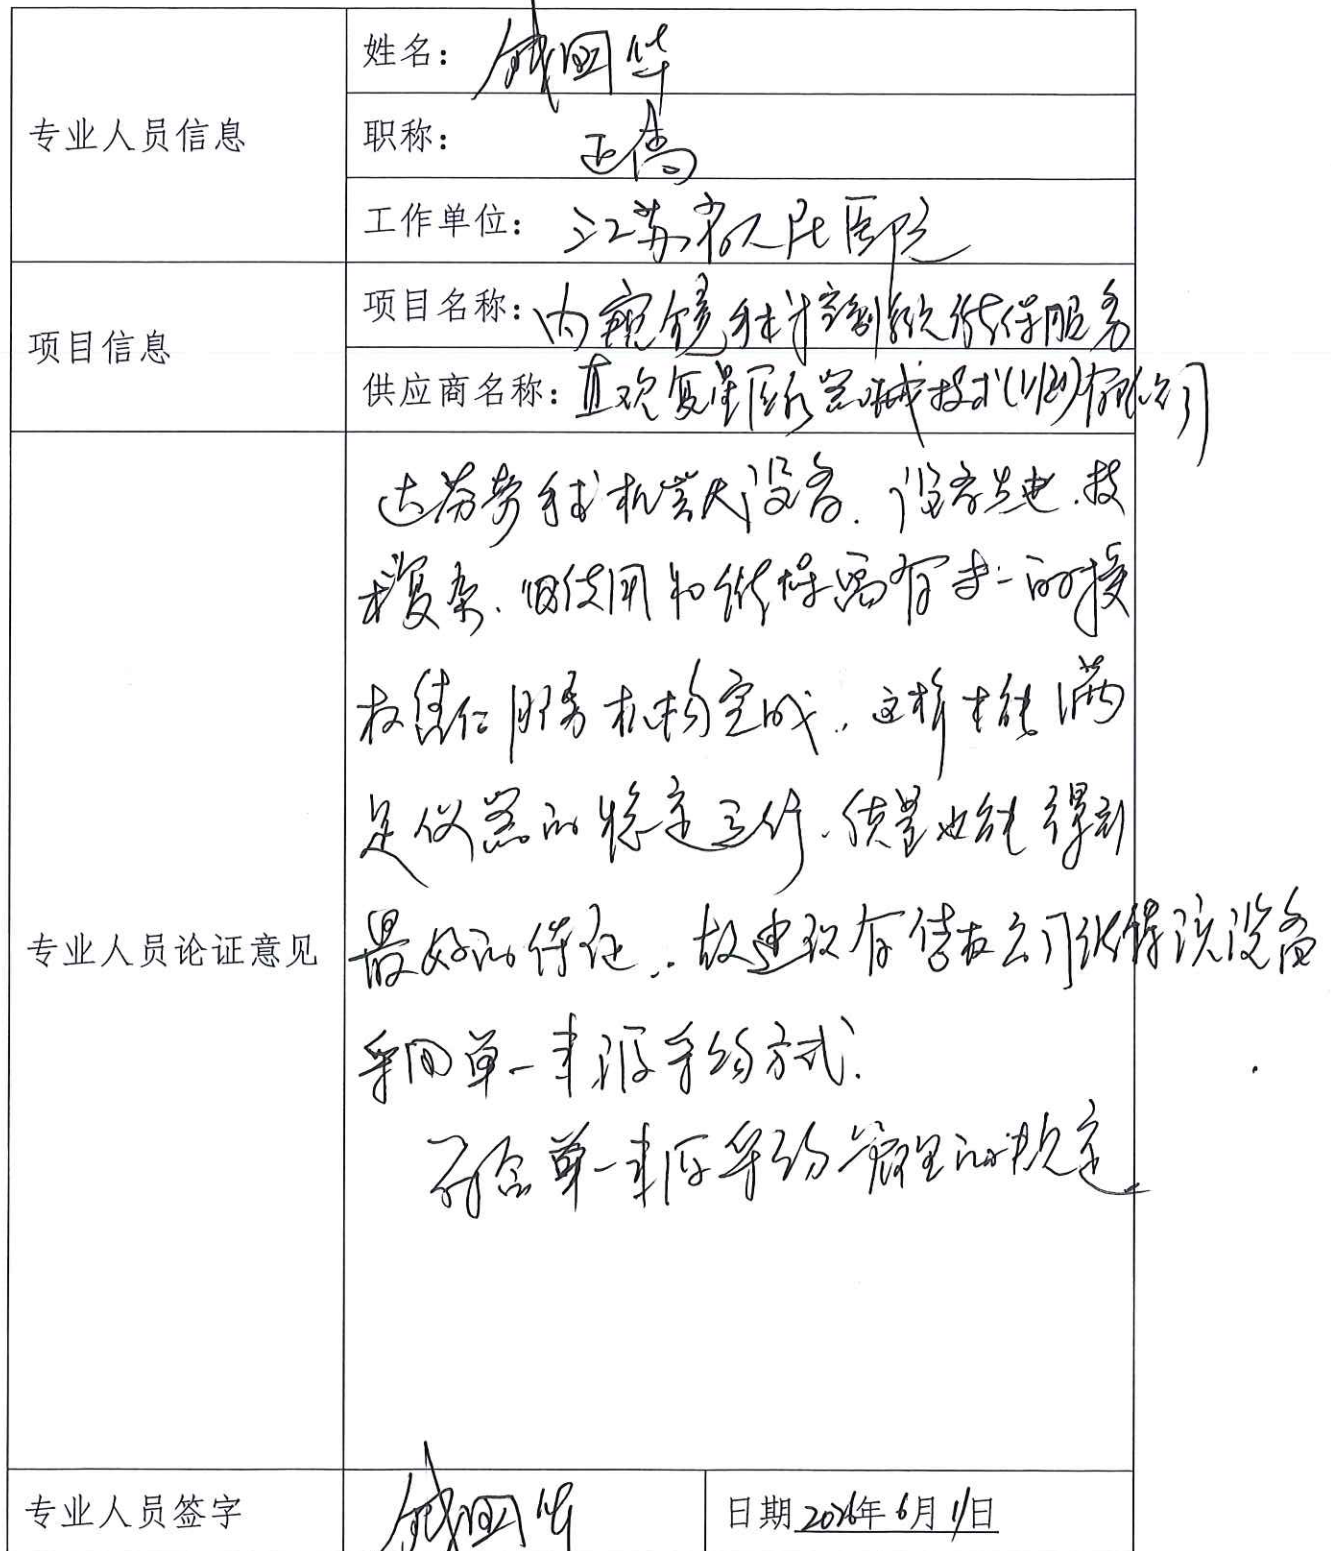 专业人员信息
姓名：钱国华
职称：正高
工作单位：江苏省人民医院
项目信息
项目名称：内窥镜手术控制系统维保服务
供应商名称：直观复星医疗器械技术(上海)有限公司
专业人员论证意见
达芬奇手术机器人设备，设备先进，技
术复杂，因使用和维保需有专一的授
权售后服务机构完成，这样才能满
足仪器的稳定运行，质量也能得到
最好的保证，故建议有授权公司维保该设备
采用单一来源采购方式。
符合单一来源采购管理的规定
专业人员签字
钱国华
日期 年6月 日